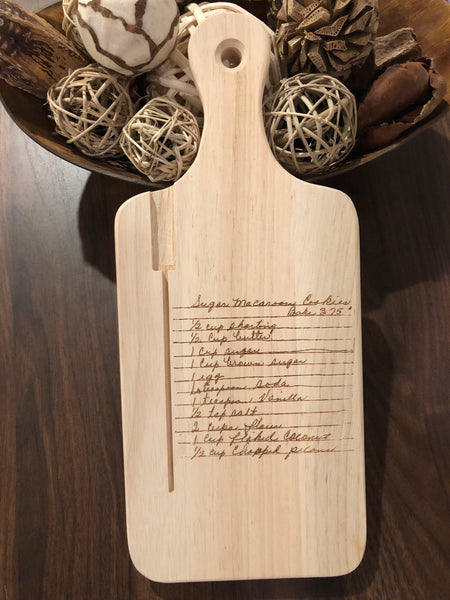 Sugar Macaroon Cookies
Bake 375°
½ cup shortning
½ Cup butter
1 Cup sugar
1 Cup brown sugar
1 egg
1 teaspoon soda
1 teaspoon Vanilla
½ tsp salt
2 cups flour
1 cup flaked Coconut
½ cup Chopped pecans